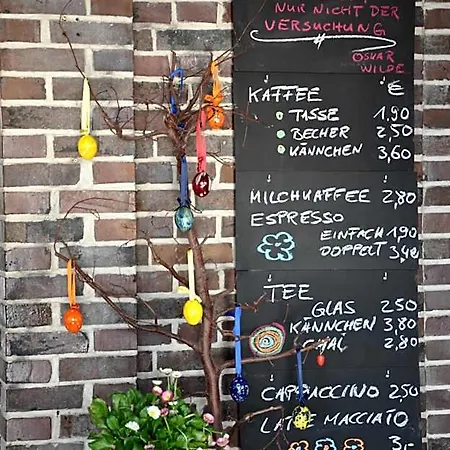 NUR NICHT DER
VERSUCHUNG
OSKAR
WILDE
KAFFEE €
TASSE 1,90
BECHER 2,50
KÄNNCHEN 3,60
MILCHKAFFEE 2,80
ESPRESSO
EINFACH 1,90
DOPPELT 3,40
TEE
GLAS 2,50
KÄNNCHEN 3,80
CHAI 2,80
CAPPUCCINO 2,50
LATTE MACCIATO
3,-